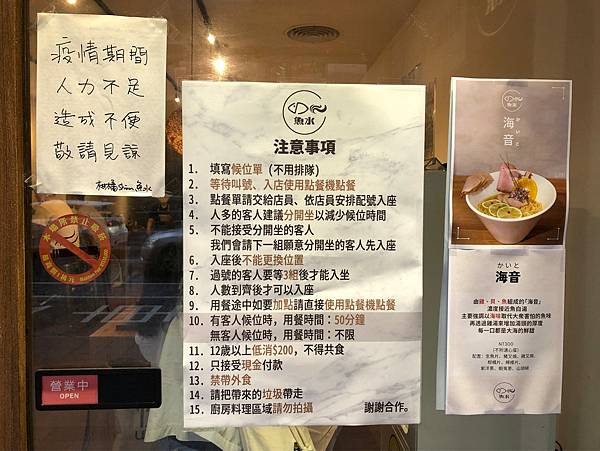 疫情期間
人力不足
造成不便
敬請見諒
魚水
注意事項
1. 填寫候位單（不用排隊）
2. 等待叫號、入店使用點餐機點餐
3. 點餐單請交給店員、依店員安排配號入座
4. 人多的客人建議分開坐以減少候位時間
5. 不能接受分開坐的客人
我們會請下一組願意分開坐的客人先入座
6. 入座後不能更換位置
7. 過號的客人要等3組後才能入坐
8. 人數到齊後才可以入座
9. 用餐途中如要加點請直接使用點餐機點餐
10. 有客人候位時，用餐時間：50分鐘
無客人候位時，用餐時間：不限
11. 12歲以上低消$200，不得共食
12. 只接受現金付款
13. 禁帶外食
14. 請把帶來的垃圾帶走
15. 廚房料理區域請勿拍攝
謝謝合作。
營業中
OPEN
魚水
海音
かいと
かいと
海音
由雞、貝、魚組成的「海音」
濃度接近魚白湯
主要強調以海味取代大眾害怕的魚味
再透過雞湯來增加湯頭的厚度
每一口都是大海的鮮甜
NT300
魚水